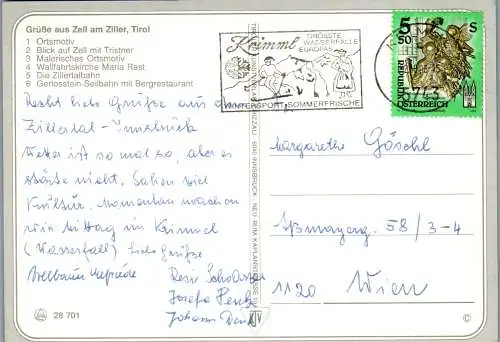 Grüße aus Zell am Ziller, Tirol
1 Ortsmotiv
2 Blick auf Zell mit Tristner
3 Malerisches Ortsmotiv
4 Wallfahrtskirche Maria Rast
5 Die Zillertalbahn
6 Gerlosstein-Seilbahn mit Bergrestaurant
Recht liebe Grüsse aus dem
Zillertal - Innsbruck
Wetter ist so mal so, aber es
störte nicht. Sahen viel
Kultur. Momentan machen
wir Mittag in Krimmel
(Wasserfall) Liebe Grüsse
Resi
Josefa
Johann
28 701
Krimml
GRÖSSTE
WASSERFÄLLE
EUROPAS
WINTERSPORT SOMMERFRISCHE
5743
5
50
S
REPUBLIK
ÖSTERREICH
Margarethe Göschl
Aßmayerg. 58 / 3-4
1120 Wien
©